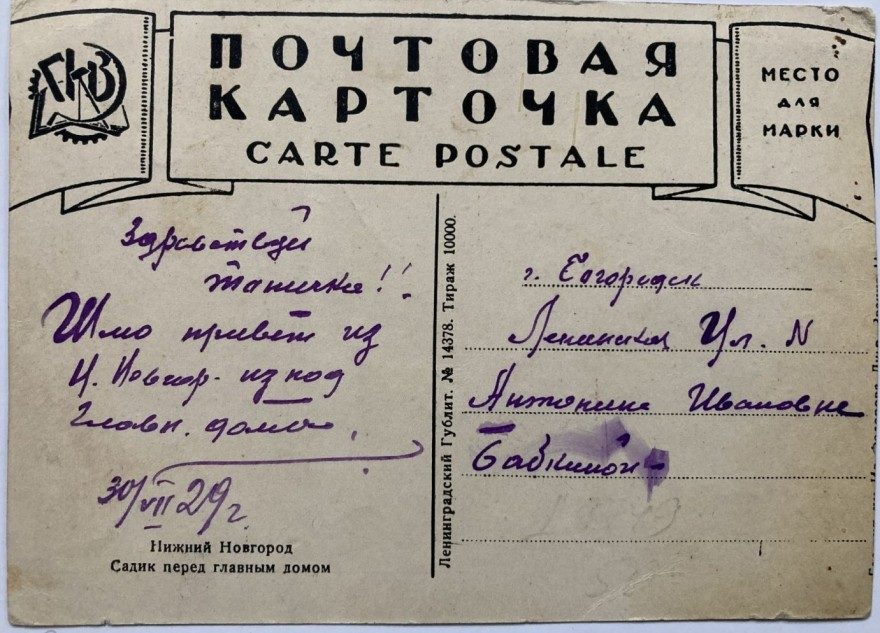 ПОЧТОВАЯ
КАРТОЧКА
CARTE POSTALE
МЕСТО
ДЛЯ
МАРКИ
Здравствуй
Тоничка!!
Шлю привет из
Н. Новгор. из под
Главн. дома.
30/VII 29 г.
Нижний Новгород
Садик перед главным домом
Ленинградский Гублит. № 14378. Тираж 10000.
г. Богородск
Ленинская Ул. N
Антонине Ивановне
Бабкиной